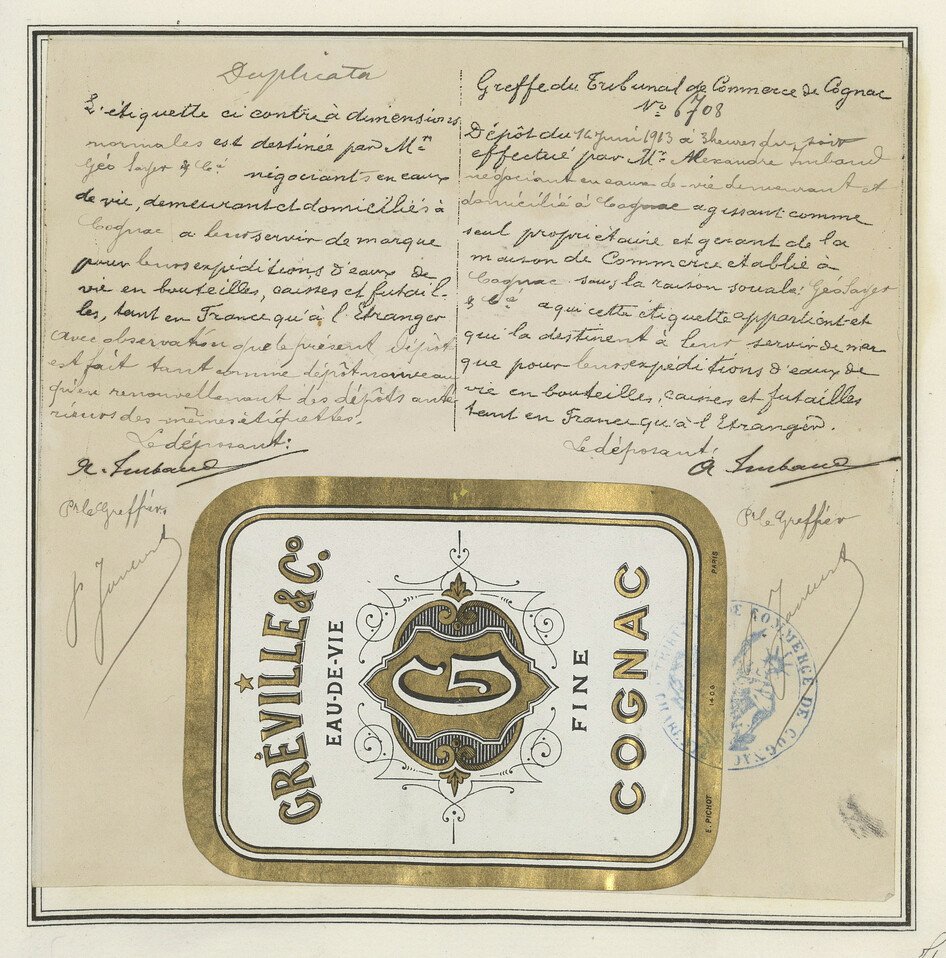 Duplicata
L'étiquette ci contre à dimensions
normales est destinée par Mrs
Géo Sayer & Cie négociants en eaux
de vie, demeurant et domiciliés à
Cognac a leur servir de marque
pour leurs expéditions d'eaux de
vie en bouteilles, caisses et futail-
les, tant en France qu'à l'Etranger
avec observation que le présent dépôt
est fait tant comme dépôt nouveau
qu'en renouvellement des dépôts anté
rieurs des mêmes étiquettes.
Le déposant:
A. Imbaud
Pr le Greffier
Greffe du Tribunal de Commerce de Cognac
No 6708
Dépôt du 14 Juin 1913 à 3 heures du soir
effectué par Mr Alexandre Imbaud
négociant en eaux-de-vie demeurant et
domicilié à Cognac agissant comme
seul propriétaire et gérant de la
maison de Commerce établie à
Cognac sous la raison sociale: Géo Sayer
& Cie a qui cette étiquette appartient et
qui la destinent à leur servir de mar
que pour leurs expéditions d'eaux de
vie en bouteilles, caisses et futailles
tant en France qu'à l'Etranger.
Le déposant:
A Imbaud
Pr le Greffier
GRÉVILLE & Co.
EAU-DE-VIE
G
FINE
COGNAC
E. PICHOT
PARIS
COMMERCE DE COGNAC